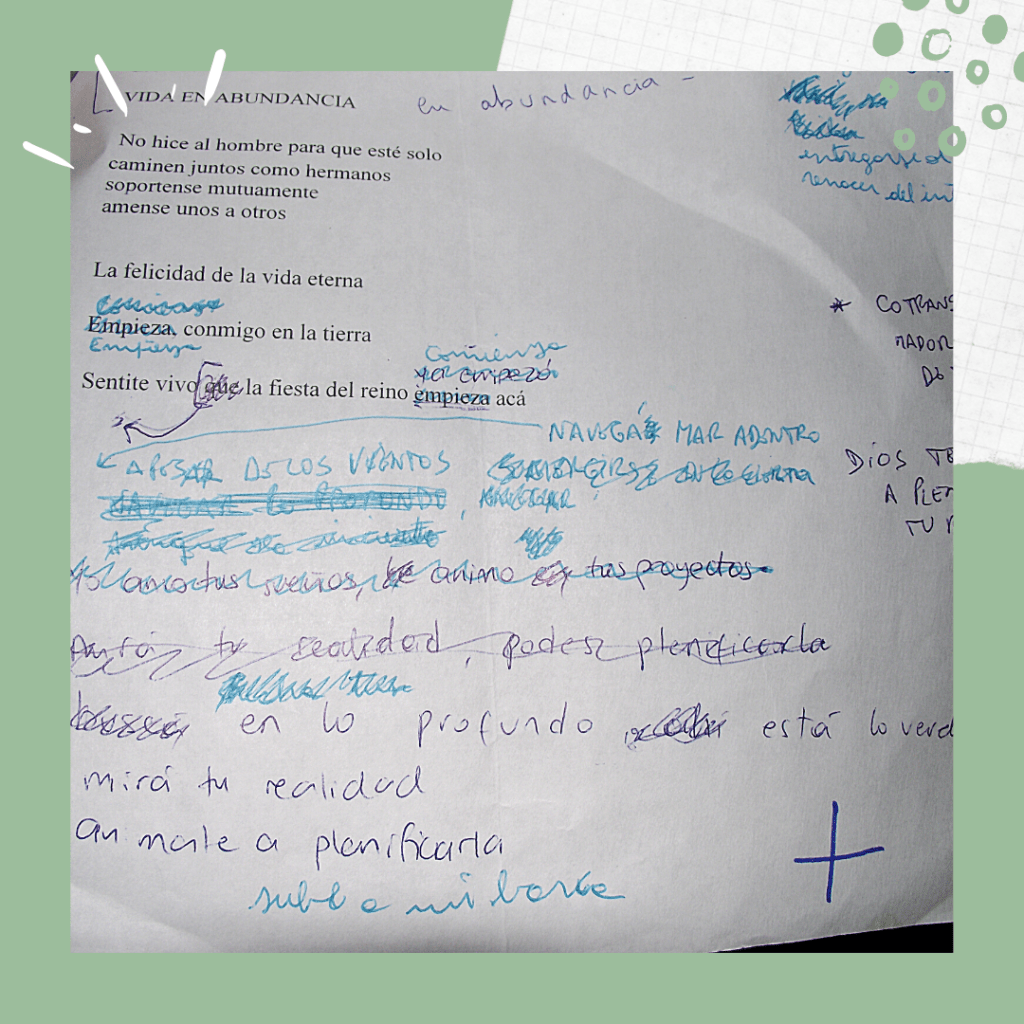 VIDA EN ABUNDANCIA
en abundancia -
No hice al hombre para que esté solo
caminen juntos como hermanos
soportense mutuamente
amense unos a otros
entregarse
renacer del
La felicidad de la vida eterna
Empieza, conmigo en la tierra
Empieza
* COTRANS
MADOR
DE
Comienza
ya empezó
Sentite vivo que la fiesta del reino empieza acá
NAVEGÁ MAR ADENTRO
APESAR DE LOS VIENTOS
DIOS TE
A PLEN
TU
Yo amo tus sueños, te animo en tus proyectos
Mirá tu realidad, podes planificarla
en lo profundo está lo verd
mirá tu realidad
animate a planificarla
subí a mi barca